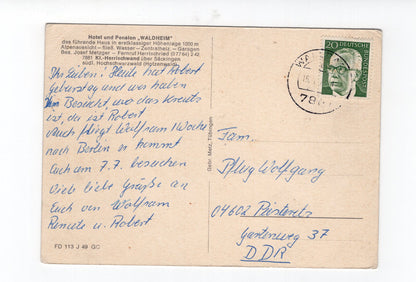 Hotel und Pension „WALDHEIM"
das führende Haus in erstklassiger Höhenlage 1000 m
Alpenaussicht - fließ. Wasser - Zentralheiz. - Garagen
Bes. Josef Metzger - Fernruf Herrischried (07764) 242
7881 Kl.-Herrischwand über Säckingen
südl. Hochschwarzwald (Hotzenwald)
Ihr Lieben! Heute hat Robert
Geburtstag und wir haben
Besuch, wo das Kreuz
ist, da ist Robert
auch fliegt Wolfram 1 Woche
nach Berlin er kommt
Euch am 7.7. besuchen
Viele liebe Grüße an
Euch von Wolfram
Renate u. Robert
FD 113 J 49 GC
Gebr. Metz, Tübingen
20
DEUTSCHE BUNDESPOST
Fam.
Pflug Wolfgang
04602
Gartenweg 37
DDR